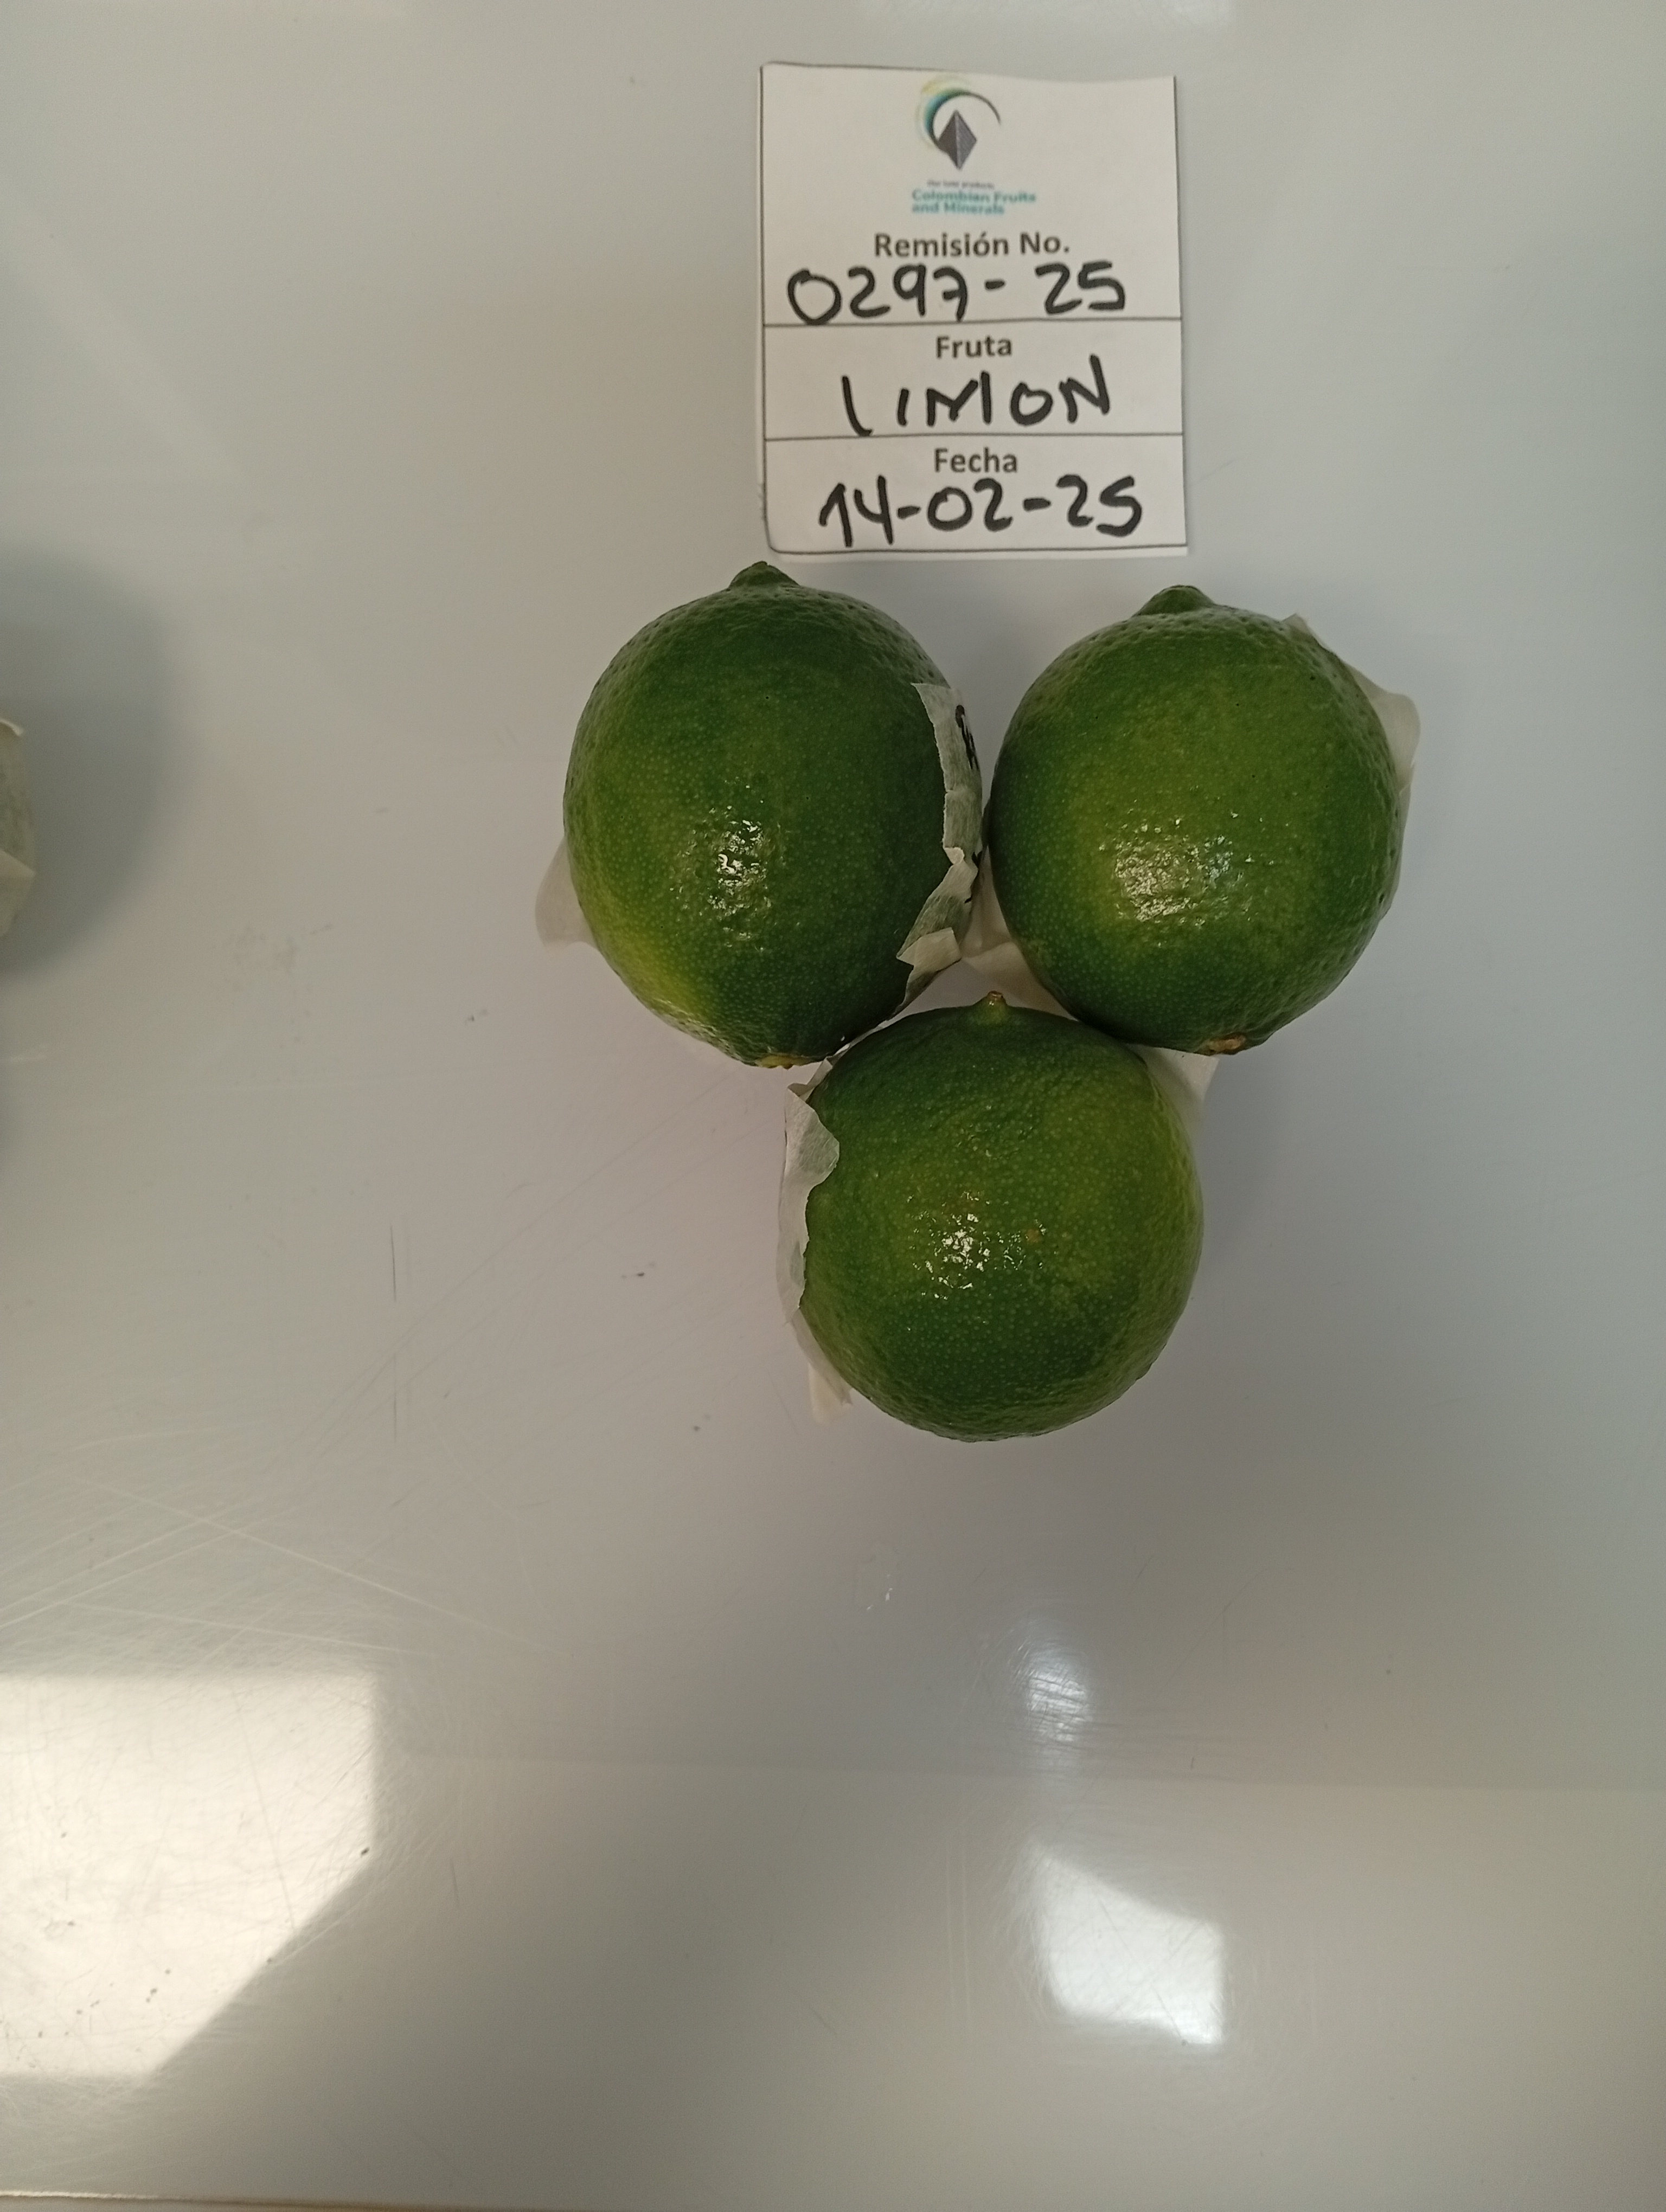 Colombian Fruits
and Minerals
Remisión No.
0297-25
Fruta
LIMON
Fecha
14-02-25